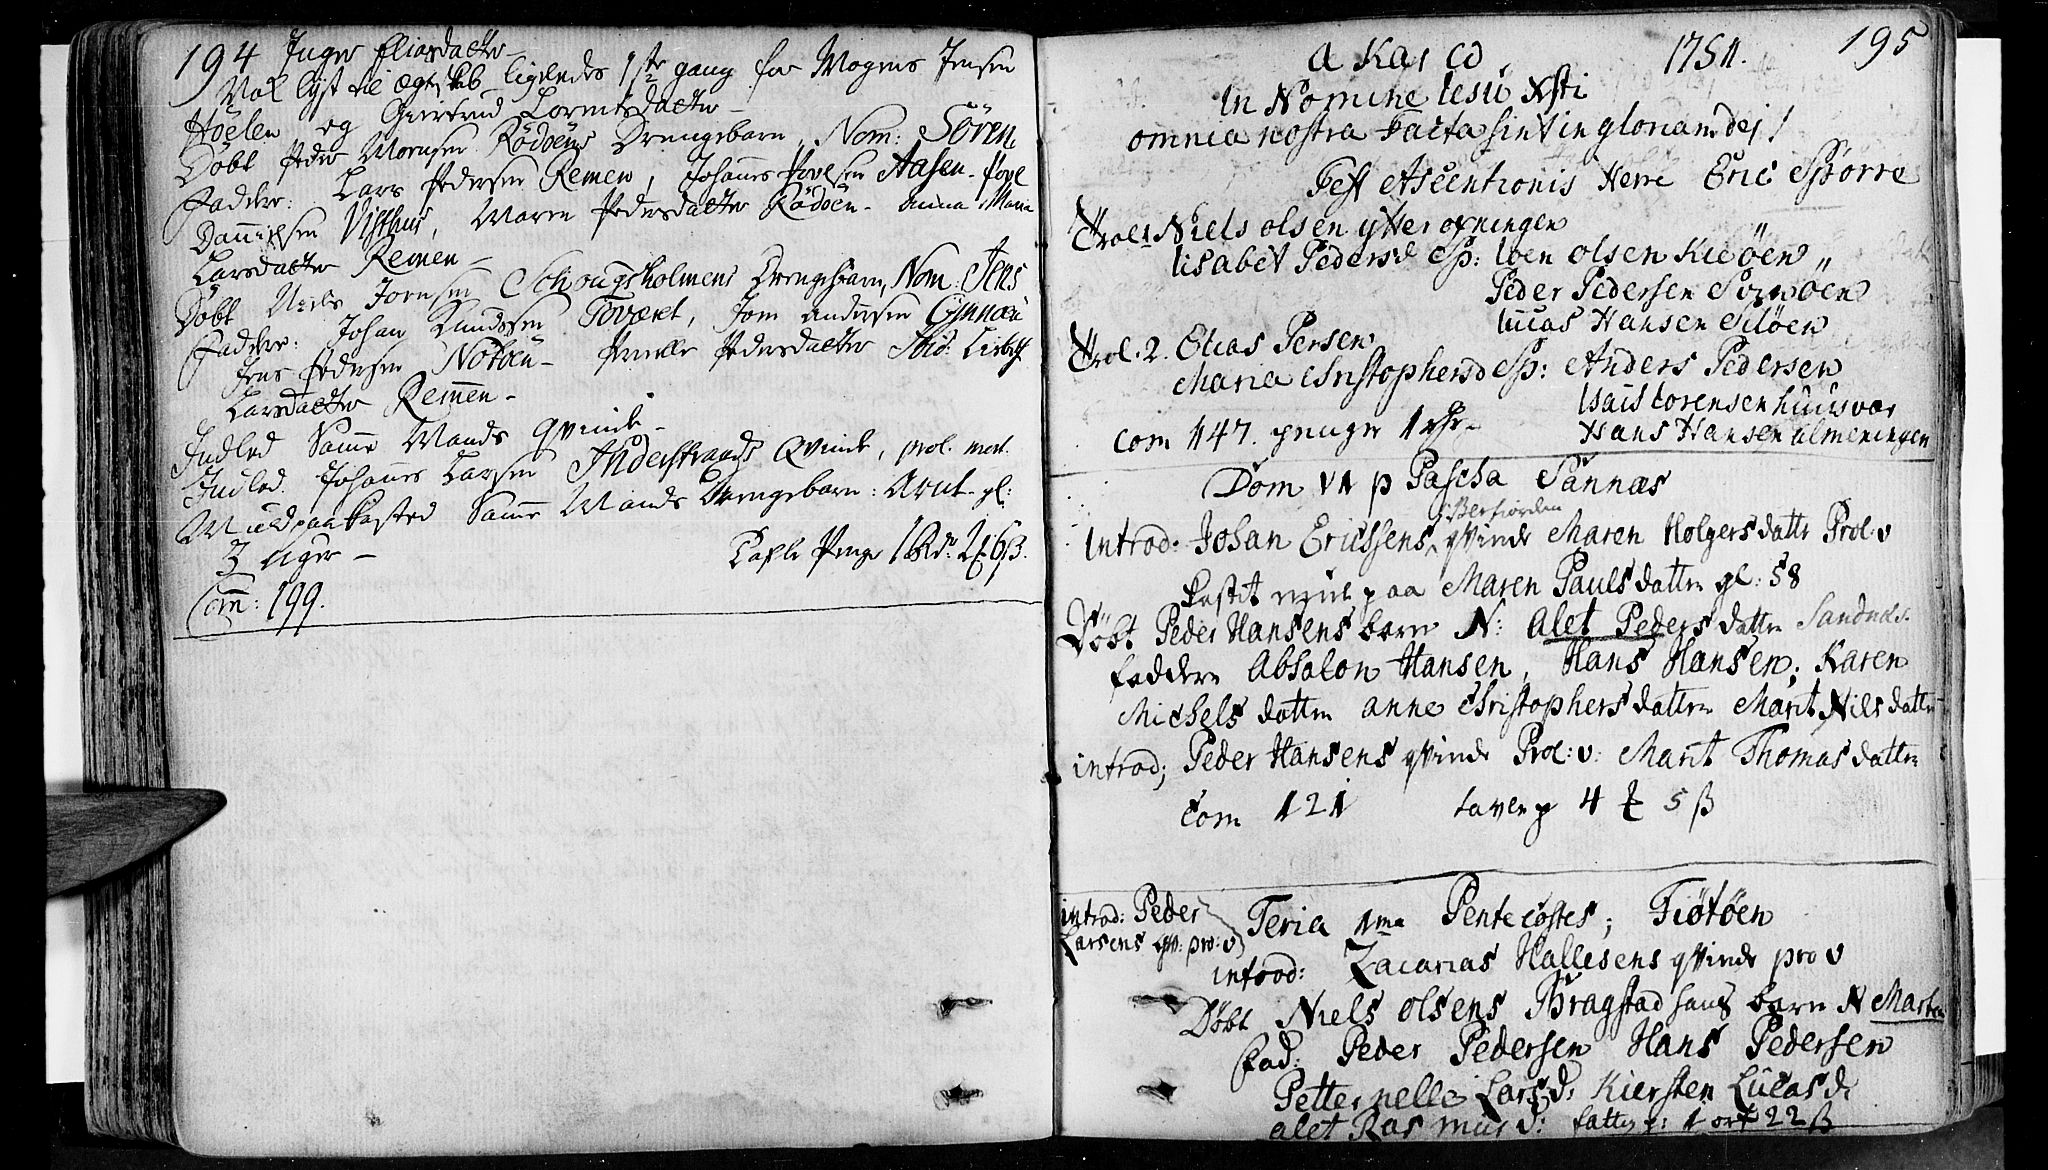 194 Inger Eliasdatter
Vol lyst til Ægteskab, ligeledes 1ste gang for Mogens Jensen
Höelen og Giertrud Lorentsdatter
Döbt Peder Mornsen Rödöens Drengebarn, Nom: Sören
Faddere: Lars Pedersen Remen, Johannes Povelsen Aasen. Povel
Dannielsen Visthus, Maren Pedersdatter Rödöen. Anna Maria
Larsdatter Remen
Döbt Niels Jonsen Schougsholmens Drengebarn, Nom: Jens
Faddere: Johan Knudsen Toværet, Jon Andersen
Jens Pedersen Notöen Pernille Pedersdatter Ibid:
Larsdatter Remen
Indled Samme Mands Qvinde
Indled. Johannes Larsen Inderstrands Qvinde, prol. mort.
Muld paakasted Samme Mands Drengebarn: Arnt. gl:
3 Uger
Tavle Penge 1 Rdr 2 6 ß.
Com: 199.
195
1751.
In Nomine Iesu Xsti
omnia nostra Facta sint in gloriam dej!
Fest Ascentionis Herre Eric
Trol: 1 Niels olsen ytter øxningen
lisabet Pedersd Sp: olsen Kieöen
Peder Pedersen
lucas Hansen
Trol. 2. Elias Persen
Maria Christophersd Sp: Anders Pedersen
Isais lorensen huusvær
com 147. penger Hans Hansen almeningen
Dom VI p Pascha Sannæs
Berfiorden
Introd: Johan Ericsens qvinde Maren Holgersdatter Prol: v
kastet paa Maren Paulsdatter gl: 58
Döbt Peder Hansens barn N: Alet Pedersdatter Sandnæs.
faddere Absalon Hansen, Hans Hansen, Karen
Michelsdatter anne Christophersdatter Marit Nilsdatter
introd; Peder Hansens qvinde Prol: v: Marit Thomasdatter
Com 121 tavlen p 4 5 ß
introd: Peder
Larsens qv: pro: v
Feria 1ma Pentecostes; Tiötöen
introd: Zacarias Hallesens qvinde pro v
Döbt Niels olsens Bragstad hans barn N
Fad: Peder Pedersen Hans Pedersen
Petternelle Larsd: Kiersten Lucasd:
alet Rasmusd: 1 ort 22 ß